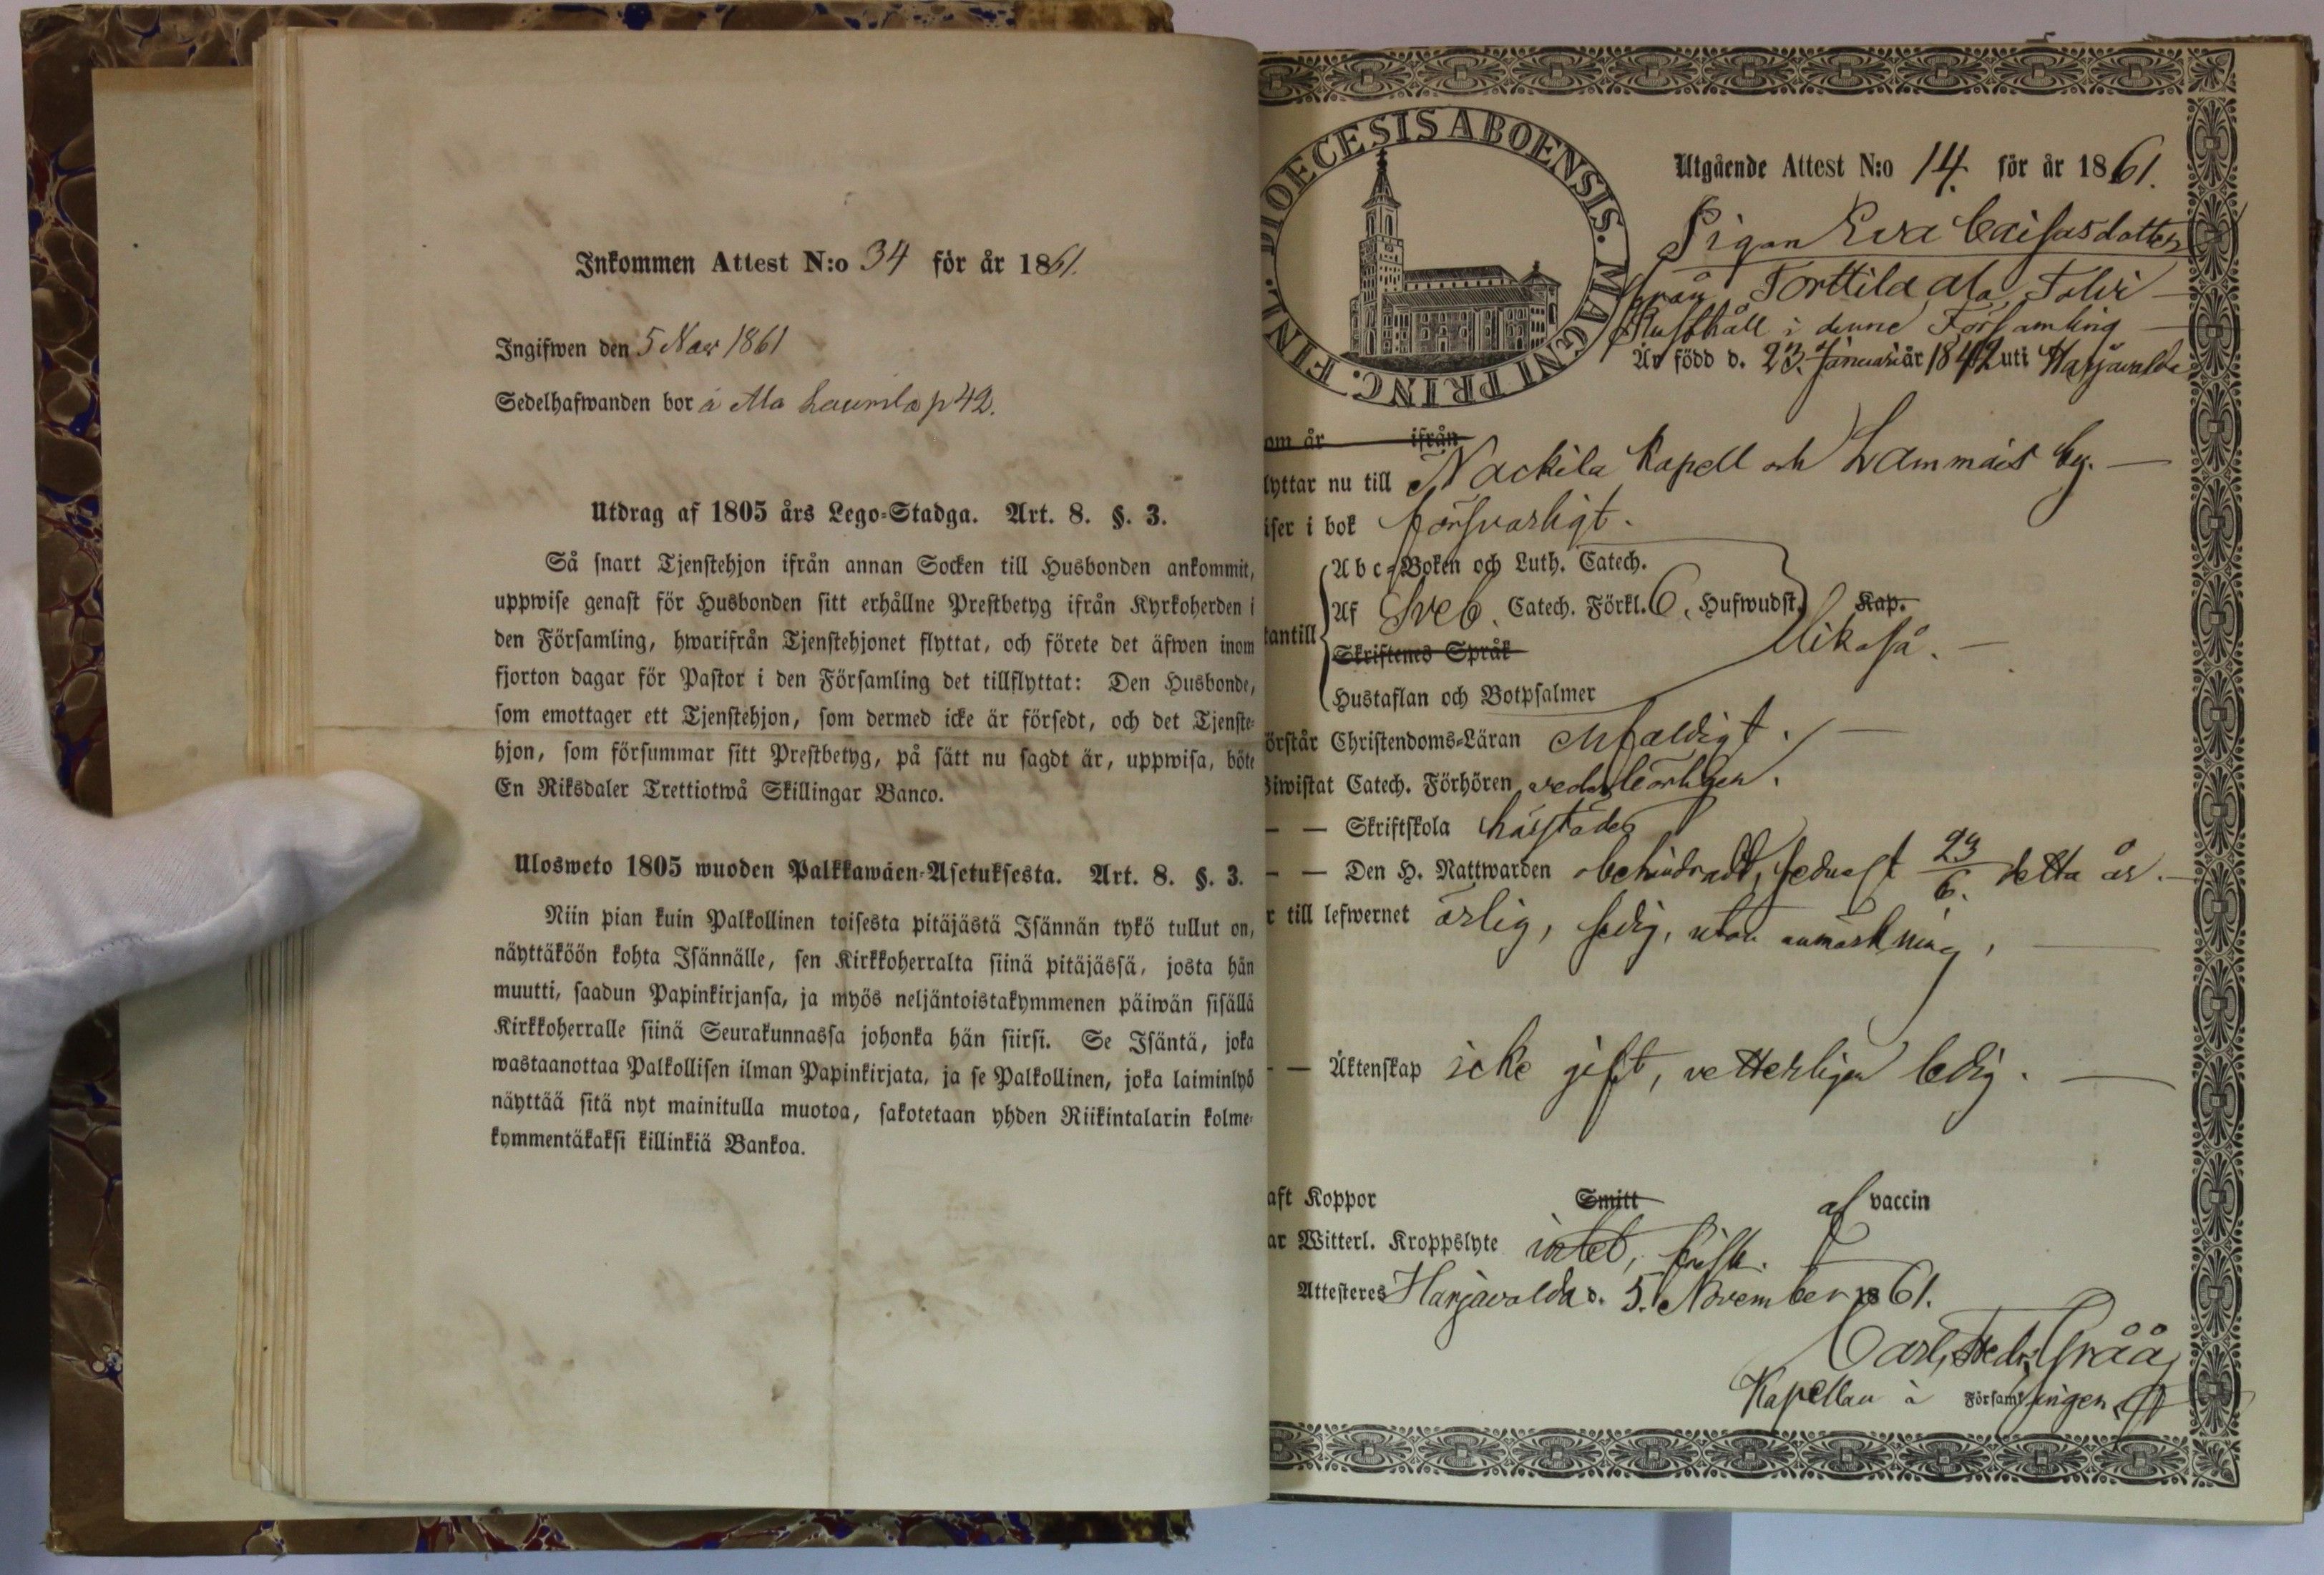 Inkommen Attest N:o 34 för år 1861.
Ingifwen den 5 Nov 1861
Sedelhafwanden bor å Ala Laurila p 42.
Utdrag af 1805 års Lego-Stadga. Art. 8. §. 3.
Så snart Tjenstehjon ifrån annan Socken till Husbonden ankommit,
uppwise genast för Husbonden sitt erhållne Prestbetyg ifrån Kyrkoherden i
den Församling, hwarifrån Tjenstehjonet flyttat, och förete det äfwen inom
fjorton dagar för Pastor i den Församling det tillflyttat: Den Husbonde,
som emottager ett Tjenstehjon, som dermed icke är försedt, och det Tjenste-
hjon, som försummar sitt Prestbetyg, på sätt nu sagdt är, uppwisa, böte
En Riksdaler Trettiotwå Skillingar Banco.
Ulosweto 1805 wuoden Palkkawäen-Asetuksesta. Art. 8. §. 3.
Niin pian kuin Palkollinen toisesta pitäjästä Isännän tykö tullut on,
näyttäköön kohta Isännälle, sen Kirkkoherralta siinä pitäjässä, josta hän
muutti, saadun Papinkirjansa, ja myös neljäntoistakymmenen päiwän sisällä
Kirkkoherralle siinä Seurakunnassa johonka hän siirsi. Se Isäntä, joka
wastaanottaa Palkollisen ilman Papinkirjata, ja se Palkollinen, joka laiminlyö
näyttää sitä nyt mainitulla muotoa, sakotetaan yhden Riikintalarin kolme-
kymmentäkaksi killinkiä Bankoa.
DIOECESIS ABOENSIS. MAGNI PRINC. FINL.
Utgående Attest N:o 14. för år 1861.
Pigan Eva Caisasdotter
från Torttila Ala Talvi
Rusthåll i denne Församling
Är född d. 23. Januari år 1842 uti Harjavalda
om år ifrån
lyttar nu till Nackila Kapell och Lammais by.
iser i bok försvarligt.
Abc-Boken och Luth. Catech.
antill Af Sveb. Catech. Förkl. 6. Hufwudst. Kap.
Likaså.
Skriftenes Språk
Hustaflan och Botpsalmer
örstår Christendoms-Läran enfaldigt.
Biwistat Catech. Förhören vederbörligen.
— — Skriftskola härstädes
— — Den H. Nattwarden obehindradt, sednast 23/6. detta år.
r till lefwernet ärlig, sedig, utan anmärkning,
— — Äktenskap icke gift, vetterligen ledig.
aft Koppor Smitt af vaccin
ar Witterl. Kroppslyte intet, frisk.
Attesteres Harjavalda d. 5. November 1861.
Carl Fredr. Gråå
Kapellan i Församlingen